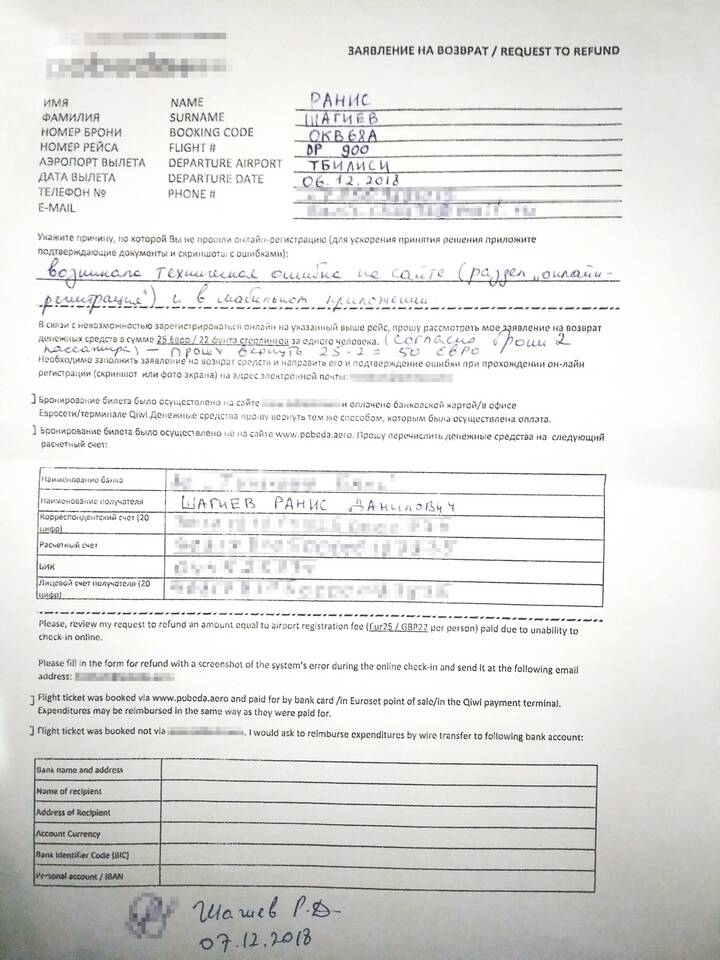 ЗАЯВЛЕНИЕ НА ВОЗВРАТ / REQUEST TO REFUND
ИМЯ NAME РАНИС
ФАМИЛИЯ SURNAME ШАГИЕВ
НОМЕР БРОНИ BOOKING CODE OKB68A
НОМЕР РЕЙСА FLIGHT # DP 900
АЭРОПОРТ ВЫЛЕТА DEPARTURE AIRPORT ТБИЛИСИ
ДАТА ВЫЛЕТА DEPARTURE DATE 06.12.2018
ТЕЛЕФОН № PHONE #
E-MAIL
Укажите причину, по которой Вы не прошли онлайн-регистрацию (для ускорения принятия решения приложите
подтверждающие документы и скриншоты с ошибками):
возникала техническая ошибка на сайте (раздел „онлайн-
регистрация") и в мобильном приложении
В связи с невозможностью зарегистрироваться онлайн на указанный выше рейс, прошу рассмотреть мое заявление на возврат
денежных средств в сумме 25 Евро / 22 фунта стерлингов за одного человека. (согласно брони 2
пассажира) – прошу вернуть 25·2 = 50 ЕВРО
Необходимо заполнить заявление на возврат средств и направить его и подтверждение ошибки при прохождении он-лайн
регистрации (скриншот или фото экрана) на адрес электронной почты:
] Бронирование билета было осуществлено на сайте и оплачено банковской картой/в офисе
Евросети/терминале Qiwi. Денежные средства прошу вернуть тем же способом, которым была осуществлена оплата.
] Бронирование билета было осуществлено не на сайте www.pobeda.aero. Прошу перечислить денежные средства на следующий
расчетный счет:
Наименование банка
Наименование получателя ШАГИЕВ РАНИС ДАНИЛОВИЧ
Корреспондентский счет (20
цифр)
Расчетный счет
БИК
Лицевой счет получателя (20
цифр)
Please, review my request to refund an amount equal to airport registration fee (Eur25 / GBP22 per person) paid due to unability to
check-in online.
Please fill in the form for refund with a screenshot of the system's error during the online check-in and send it at the following email
address:
] Flight ticket was booked via www.pobeda.aero and paid for by bank card /in Euroset point of sale/in the Qiwi payment terminal.
Expenditures may be reimbursed in the same way as they were paid for.
] Flight ticket was booked not via . I would ask to reimburse expenditures by wire transfer to following bank account:
Bank name and address
Name of recipient
Address of Recipient
Account Currency
Bank Identifier Code (BIC)
Personal account / IBAN
Шагиев Р.Д.
07.12.2018